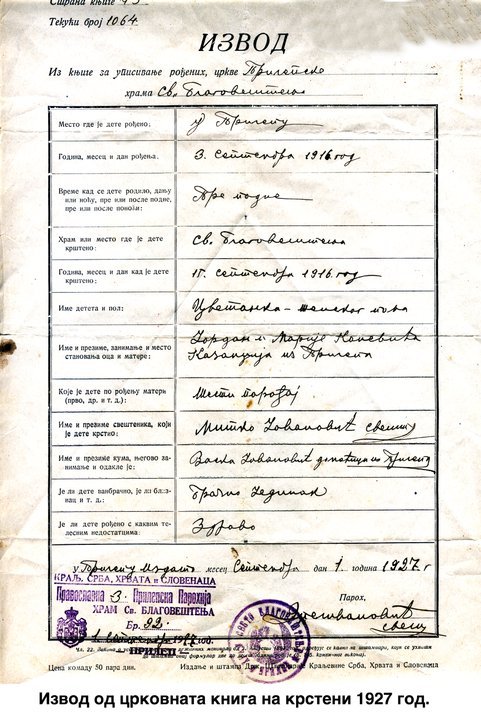 Страна књиге
Текући број 1064
ИЗВОД
Из књиге за уписивање рођених, цркве Прилепске
храма Св. Благовештења
Место где је дете рођено: у Прилепу
Година, месец и дан рођења: 3. септембра 1916. год
Време кад се дете родило, дању
или ноћу, пре или после подне,
пре или после поноћи: Пре подне
Храм или место где је дете
крштено: Св. Благовештења
Година, месец и дан кад је дете
крштено: септембра 1916. год
Име детета и пол: Цветанка - женског пола
Име и презиме, занимање и место
становања оца и матере: Јордан и Марије
Казанџија из Прилепа
Које је дете по рођењу матери
(прво, др. и т. д.): Шести порођај
Име и презиме свештеника, који
је дете крстио: Митко Јовановић свешт
Име и презиме кума, његово за-
нимање и одакле је: Јовановић из Прилепа
Је ли дете ванбрачно, је ли близ-
нац и т. д.: Брачно Јединак
Је ли дете рођено с каквим те-
лесним недостатцима: Здраво
у Прилепу месец Септембра дан 1 година 1927 г
КРАЉ. СРБА, ХРВАТА И СЛОВЕНАЦА
Православна 3. Прилепска Парохија
ХРАМ Св. БЛАГОВЕШТЕЊА
Бр. 92.
ПРИЛЕП
Парох,
Цена комаду 50 пара дин. Издање и штампа Држ. Штампарије Краљевине Срба, Хрвата и Словенаца
Извод од црковната книга на крстени 1927 год.